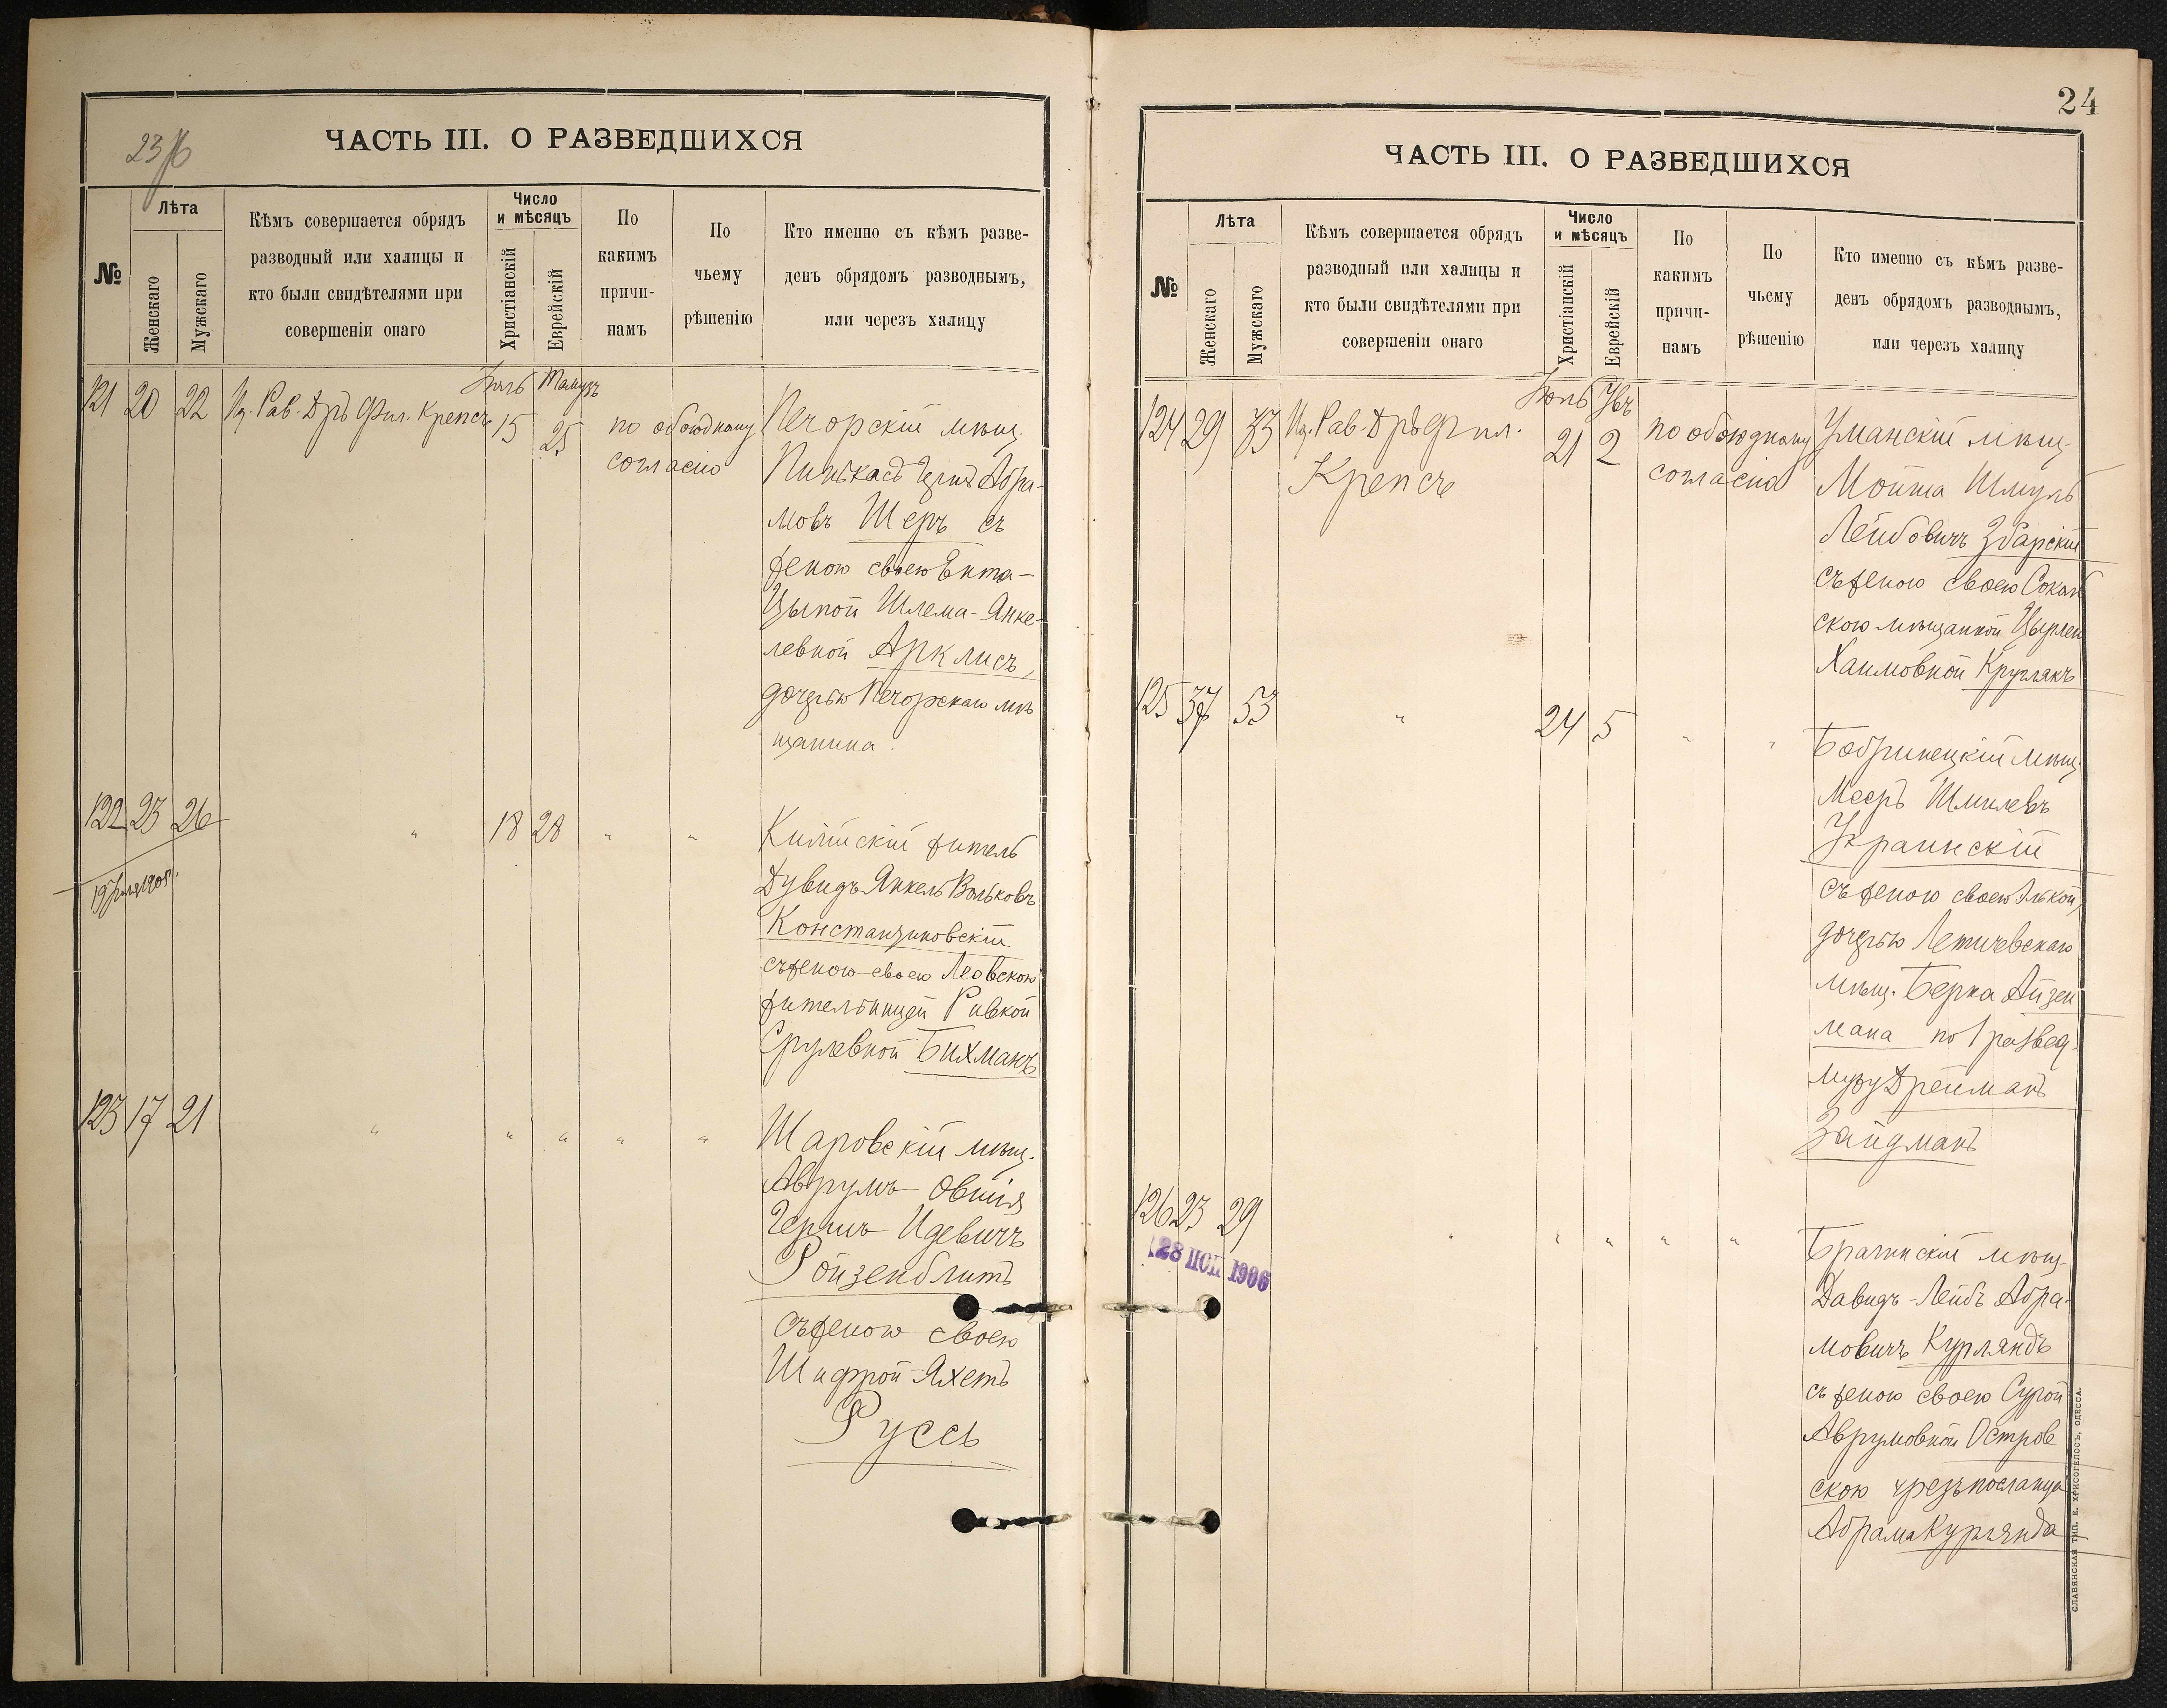 23 об
ЧАСТЬ III. О РАЗВЕДШИХСЯ
№
Лѣта
Женскаго
Мужскаго
Кѣмъ совершается обрядъ
разводный или халицы и
кто были свидѣтелями при
совершеніи онаго
Число
и мѣсяцъ
Христіанскій
Еврейскій
По
какимъ
причи-
намъ
По
чьему
рѣшенію
Кто именно съ кѣмъ разве-
денъ обрядомъ разводнымъ,
или через халицу
Іюль Тамузъ
121 20 22 Рав. Дръ Фил. Крепсъ 15 25 по обоюдному
согласію
Печорскій мѣщ.
Пинькасъ Герш Абра-
мовъ Шеръ съ
женою своею Ента-
Цыпой Шлема-Янке-
левной Арклисъ,
дочерью Печорскаго мѣ
щанина.
122 23 26 " 18 28 " "
Килійскій житель
Дувидъ Янкель Вольковъ
Константиновскій
съ женою своею Леовскою
жительницей Ривкой
Срулевной Бихманъ
123 17 21 " " " " "
Шаровскій мѣщ.
Аврумъ Овшія
Гершъ Идевичъ
Ройзенблитъ
съ женою своею
Шифрой-Яхетъ
Руссъ
24
ЧАСТЬ III. О РАЗВЕДШИХСЯ
№
Лѣта
Женскаго
Мужскаго
Кѣмъ совершается обрядъ
разводный или халицы и
кто были свидѣтелями при
совершеніи онаго
Число
и мѣсяцъ
Христіанскій
Еврейскій
По
какимъ
причи-
намъ
По
чьему
рѣшенію
Кто именно съ кѣмъ разве-
денъ обрядомъ разводнымъ,
или через халицу
Іюль Увъ
124 29 33 Рав. Дръ Фил.
Крепсъ
21 2 по обоюдному
согласію
Уманскій мѣщ.
Мойша Шмуль
Лейбовичъ Збарскій
съ женою своею Сокол
скою мѣщанкой Цырлей
Хаимовной Круглякъ
125 37 53 " 24 5 " "
Бобринецкій мѣщ.
Мееръ Шмилевъ
Украинскій
съ женою своею Элькой,
дочерью Летичевскаго
мѣщ. Берка Айзен
мана по 1 развед.
мужу Дрейманъ
Зайдманъ
126 23 29 " " " " "
28 1906
Брагинскій мѣщ.
Давидъ-Лейбъ Абра-
мовичъ Курляндъ
съ женою своею Сурой
Аврумовной Остров
скою чрезъ посланца
Абрама Курлянда
СЛАВЯНСКАЯ ТИП. Е. ХРИСОГЕЛОСЪ, ОДЕССА.